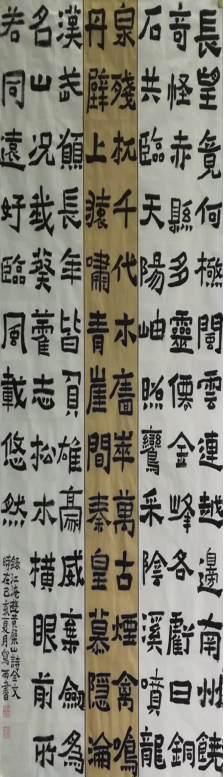 長望竟何極閩雲連越邊南州饒
奇怪赤縣多靈僊金峰各虧日銅
石共臨天陽岫照鸞采陰溪噴龍
泉殘杌千代木廧崒萬古煙禽鳴
丹壁上猿嘯青崖間秦皇慕隱淪
漢武願長年皆負雄豪威棄劍為
名山況我葵藿志松木橫眼前所
若同遠好臨風載悠然
錄江淹遊黃檗山詩全文
時在己亥夏月寫書